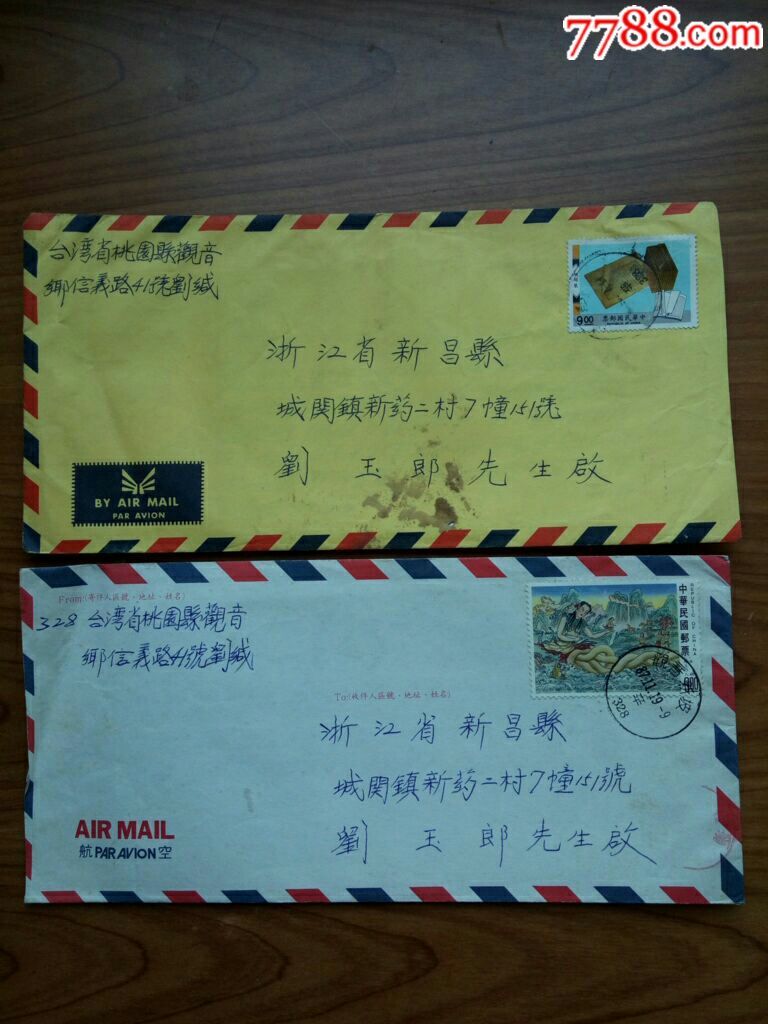 7788.com
台湾省桃園縣觀音
鄉信義路41號劉緘
9.00
票郵國民華中
浙江省新昌縣
城関鎮新药二村7幢151號
劉 玉 郎 先生啟
BY AIR MAIL
PAR AVION
From:(寄件人區號、地址、姓名)
328 台湾省桃園縣觀音
鄉信義路41號劉緘
中華民國郵票
REPUBLIC OF CHINA
87.11.19-9
328
To:(收件人區號、地址、姓名)
浙江省新昌縣
城関鎮新药二村7幢151號
劉 玉 郎 先生啟
AIR MAIL
航 PAR AVION 空